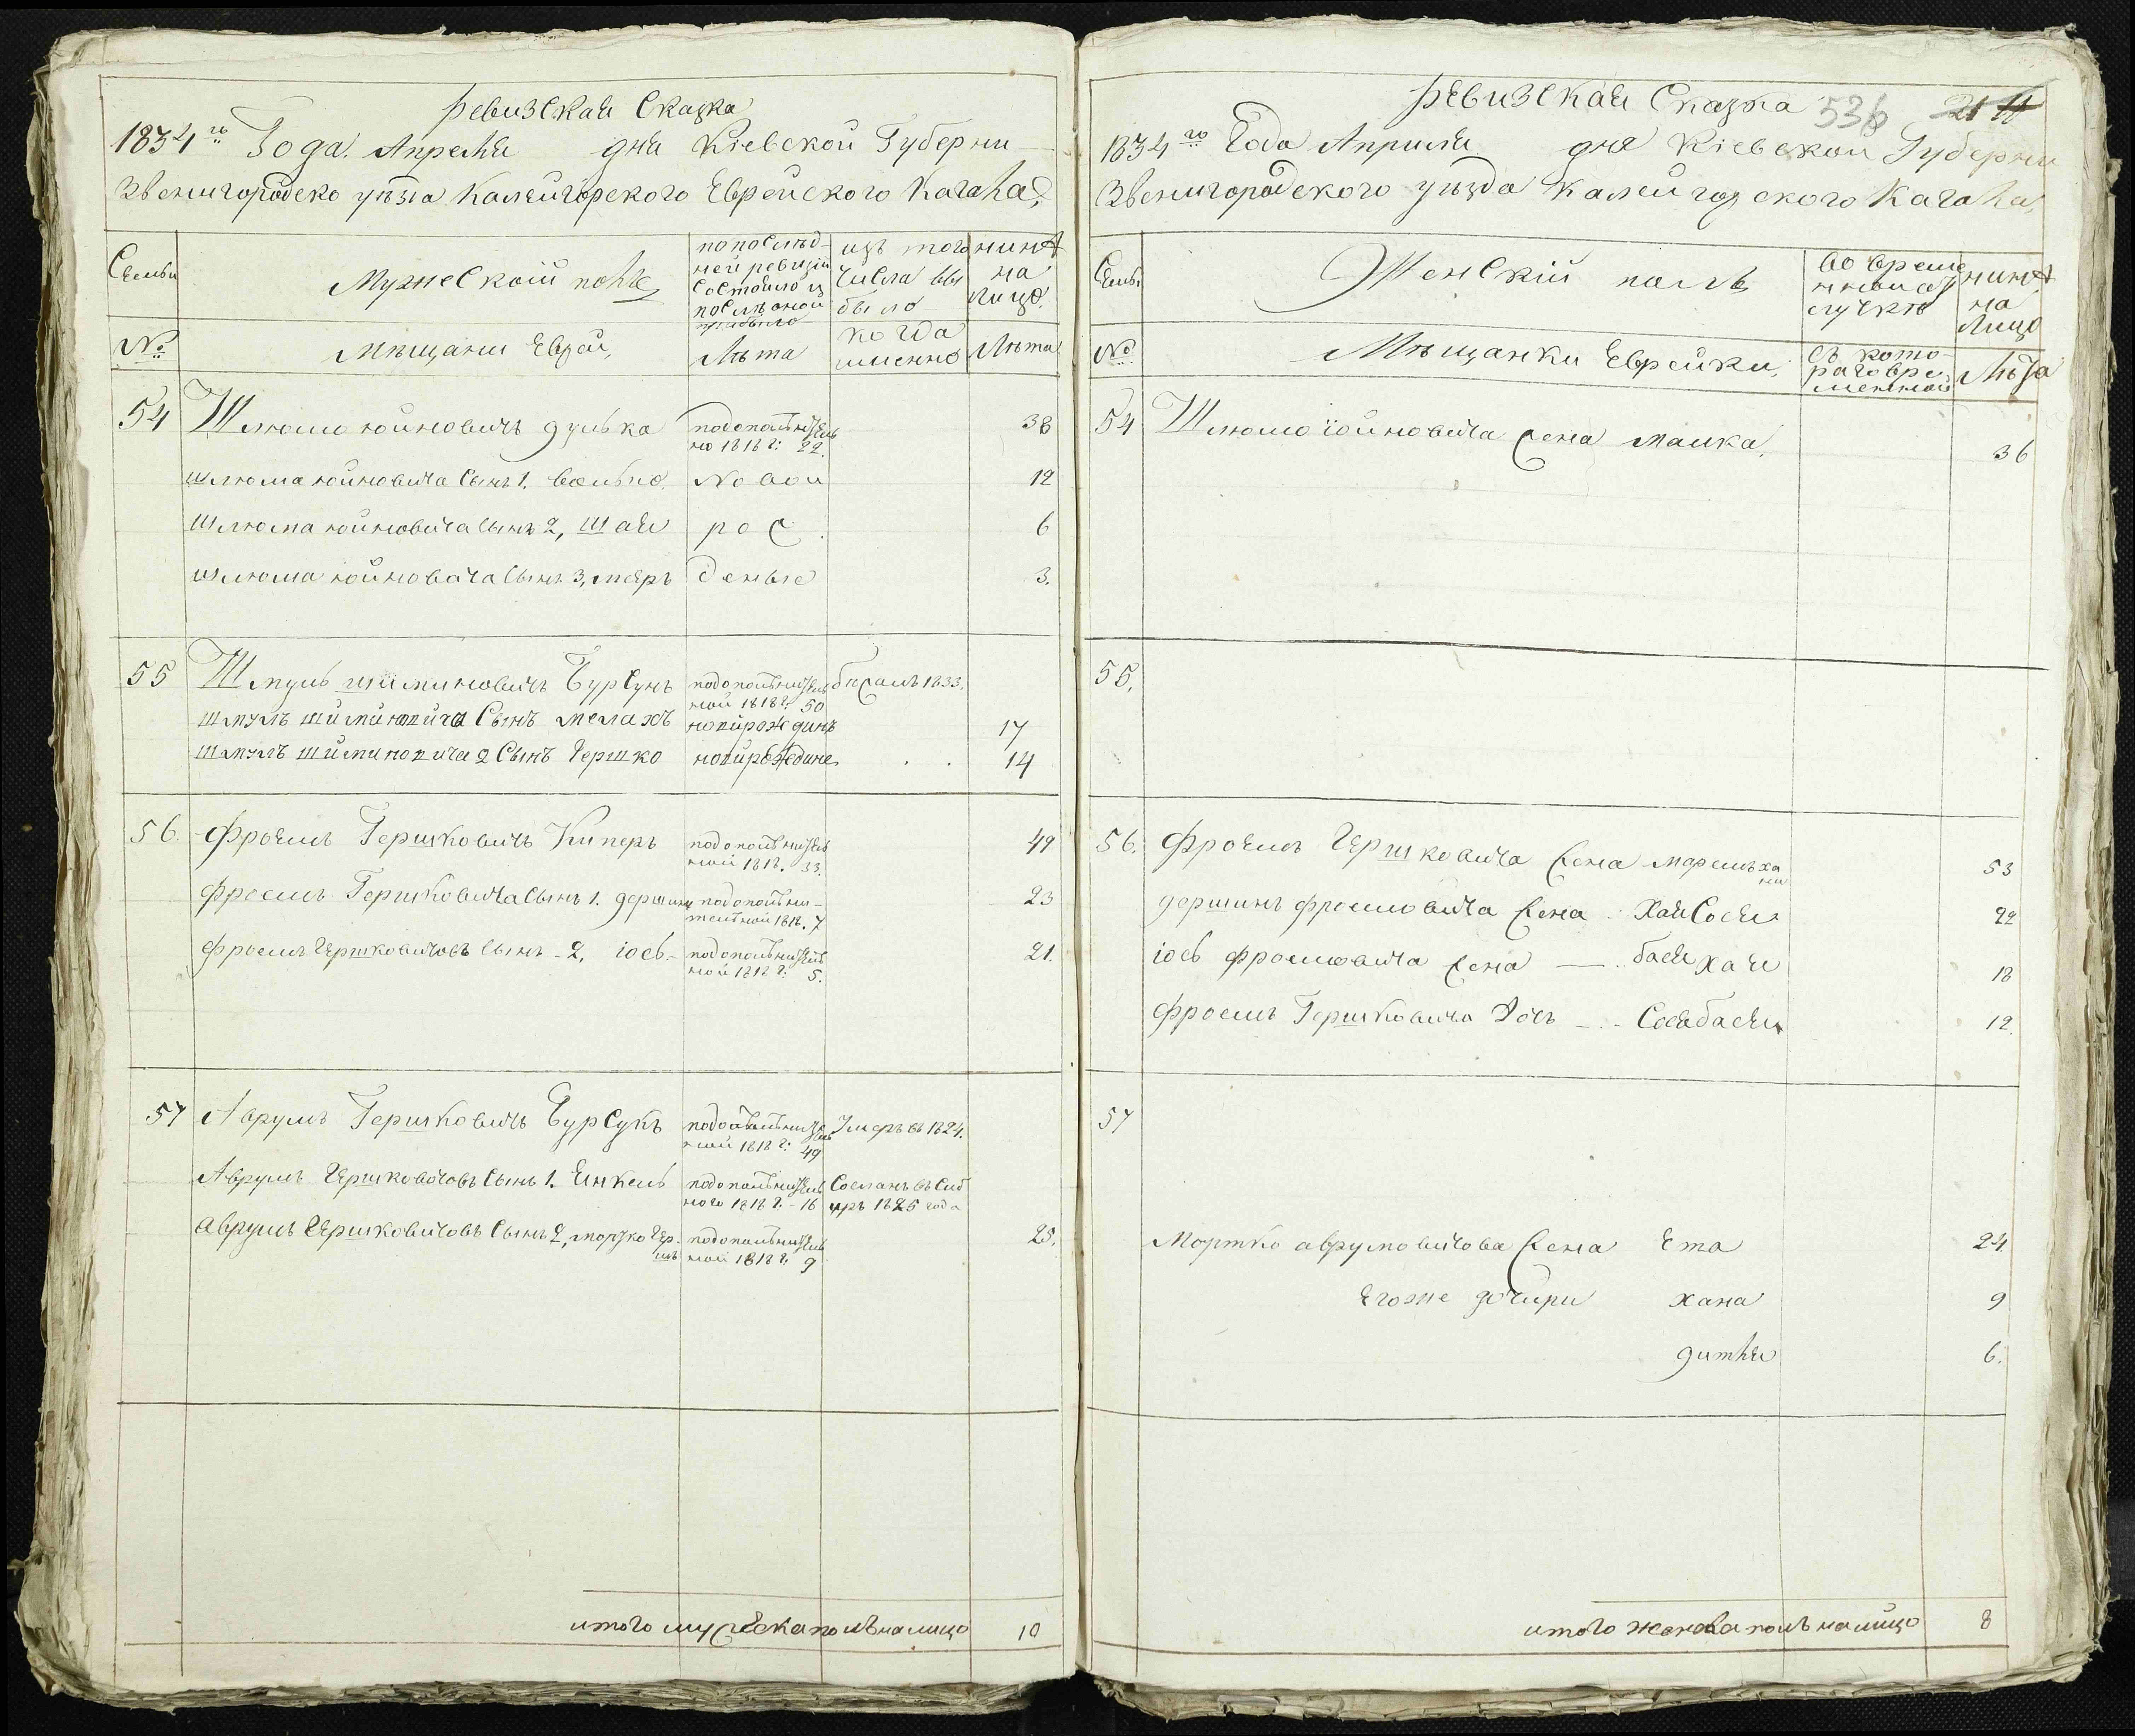 Ревизская Сказка
1834го Года. Апреля дня Кіевской Губерни
Звенигородско уѣзда Калыгорского Еврейского Кагала,
Семьи
Мужеской полъ
по послѣд-
ней ревизіи
состояло и
послѣ оной
прибыло
изъ того
числа вы
было
нинѣ
на
лицо.
№
Мѣщани Еврей,
Лѣта
когда
именно
Лѣта
54 Шлюмо юйновичъ дулька
подополнитель
но 1818 г: 22.
38
шлюма юйновича Сынъ 1. волько новои 12
шлюма юйновича Сынъ 2, шая рож 6
шлюма юйновача Сынъ 3, мееръ деные 3.
55 Шмуль шиминовичъ Бурсукъ
подополнитель
ной 1818 г. 50
бжалъ 1833.
шмулъ шиминовича Сынъ мелахъ новирожединъ 17
шмулъ шиминовича 2 Сынъ гершко новирожедине 14
56. Фроемъ Гершковичъ Киперъ
подополнитель
ной 1818. 33.
49
Фроемъ Гершковича Сынъ 1. дершинъ
подополни-
тельной 1818. 7
23
Фроемъ Гершковичовъ Сынъ - 2. іосъ -
подополнитель
ной 1818 г. 5.
21.
57 Аврумъ Гершковичъ Бурсукъ
подополнитель
ной 1818 г: 49
Умеръ въ 1824.
Аврумъ Гершковичовъ Сынъ 1. Енкель
подополнитель
ного 1818 г. - 16
Сосланъ въ Сиб
иръ 1825 года
аврумъ Гершковичовъ Сынъ 2, мортко Гер-
шъ
подополнитель
ной 1818 г. 9
25.
итого мужеска полъ налицо 10
Ревизская Сказка 536 21
1834го Года Априля дня Кіевскои Губерни
Звенигородского уѣзда Калыгорского Кагала,
Семьи
Женскій полъ
во време
нной от
лучкѣ
нинѣ
на
Лицо
№
Мѣщанки Еврейки,
съ кото-
раго вре-
менной
Лѣта
54 Шлюмо іойновича жена малка. 36
55.
56. Фроемъ Гершковича жена
53
дершинъ фроимовича жена Хаясося 22
іосъ фроимовича жена — бася хая 18
Фроемъ Гершковича Дочъ — Сосябася 12.
57
Мортко аврумовичова жена Ета 24.
Егоже дочири хана 9
дитля 6.
итого женска полъ налицо 8